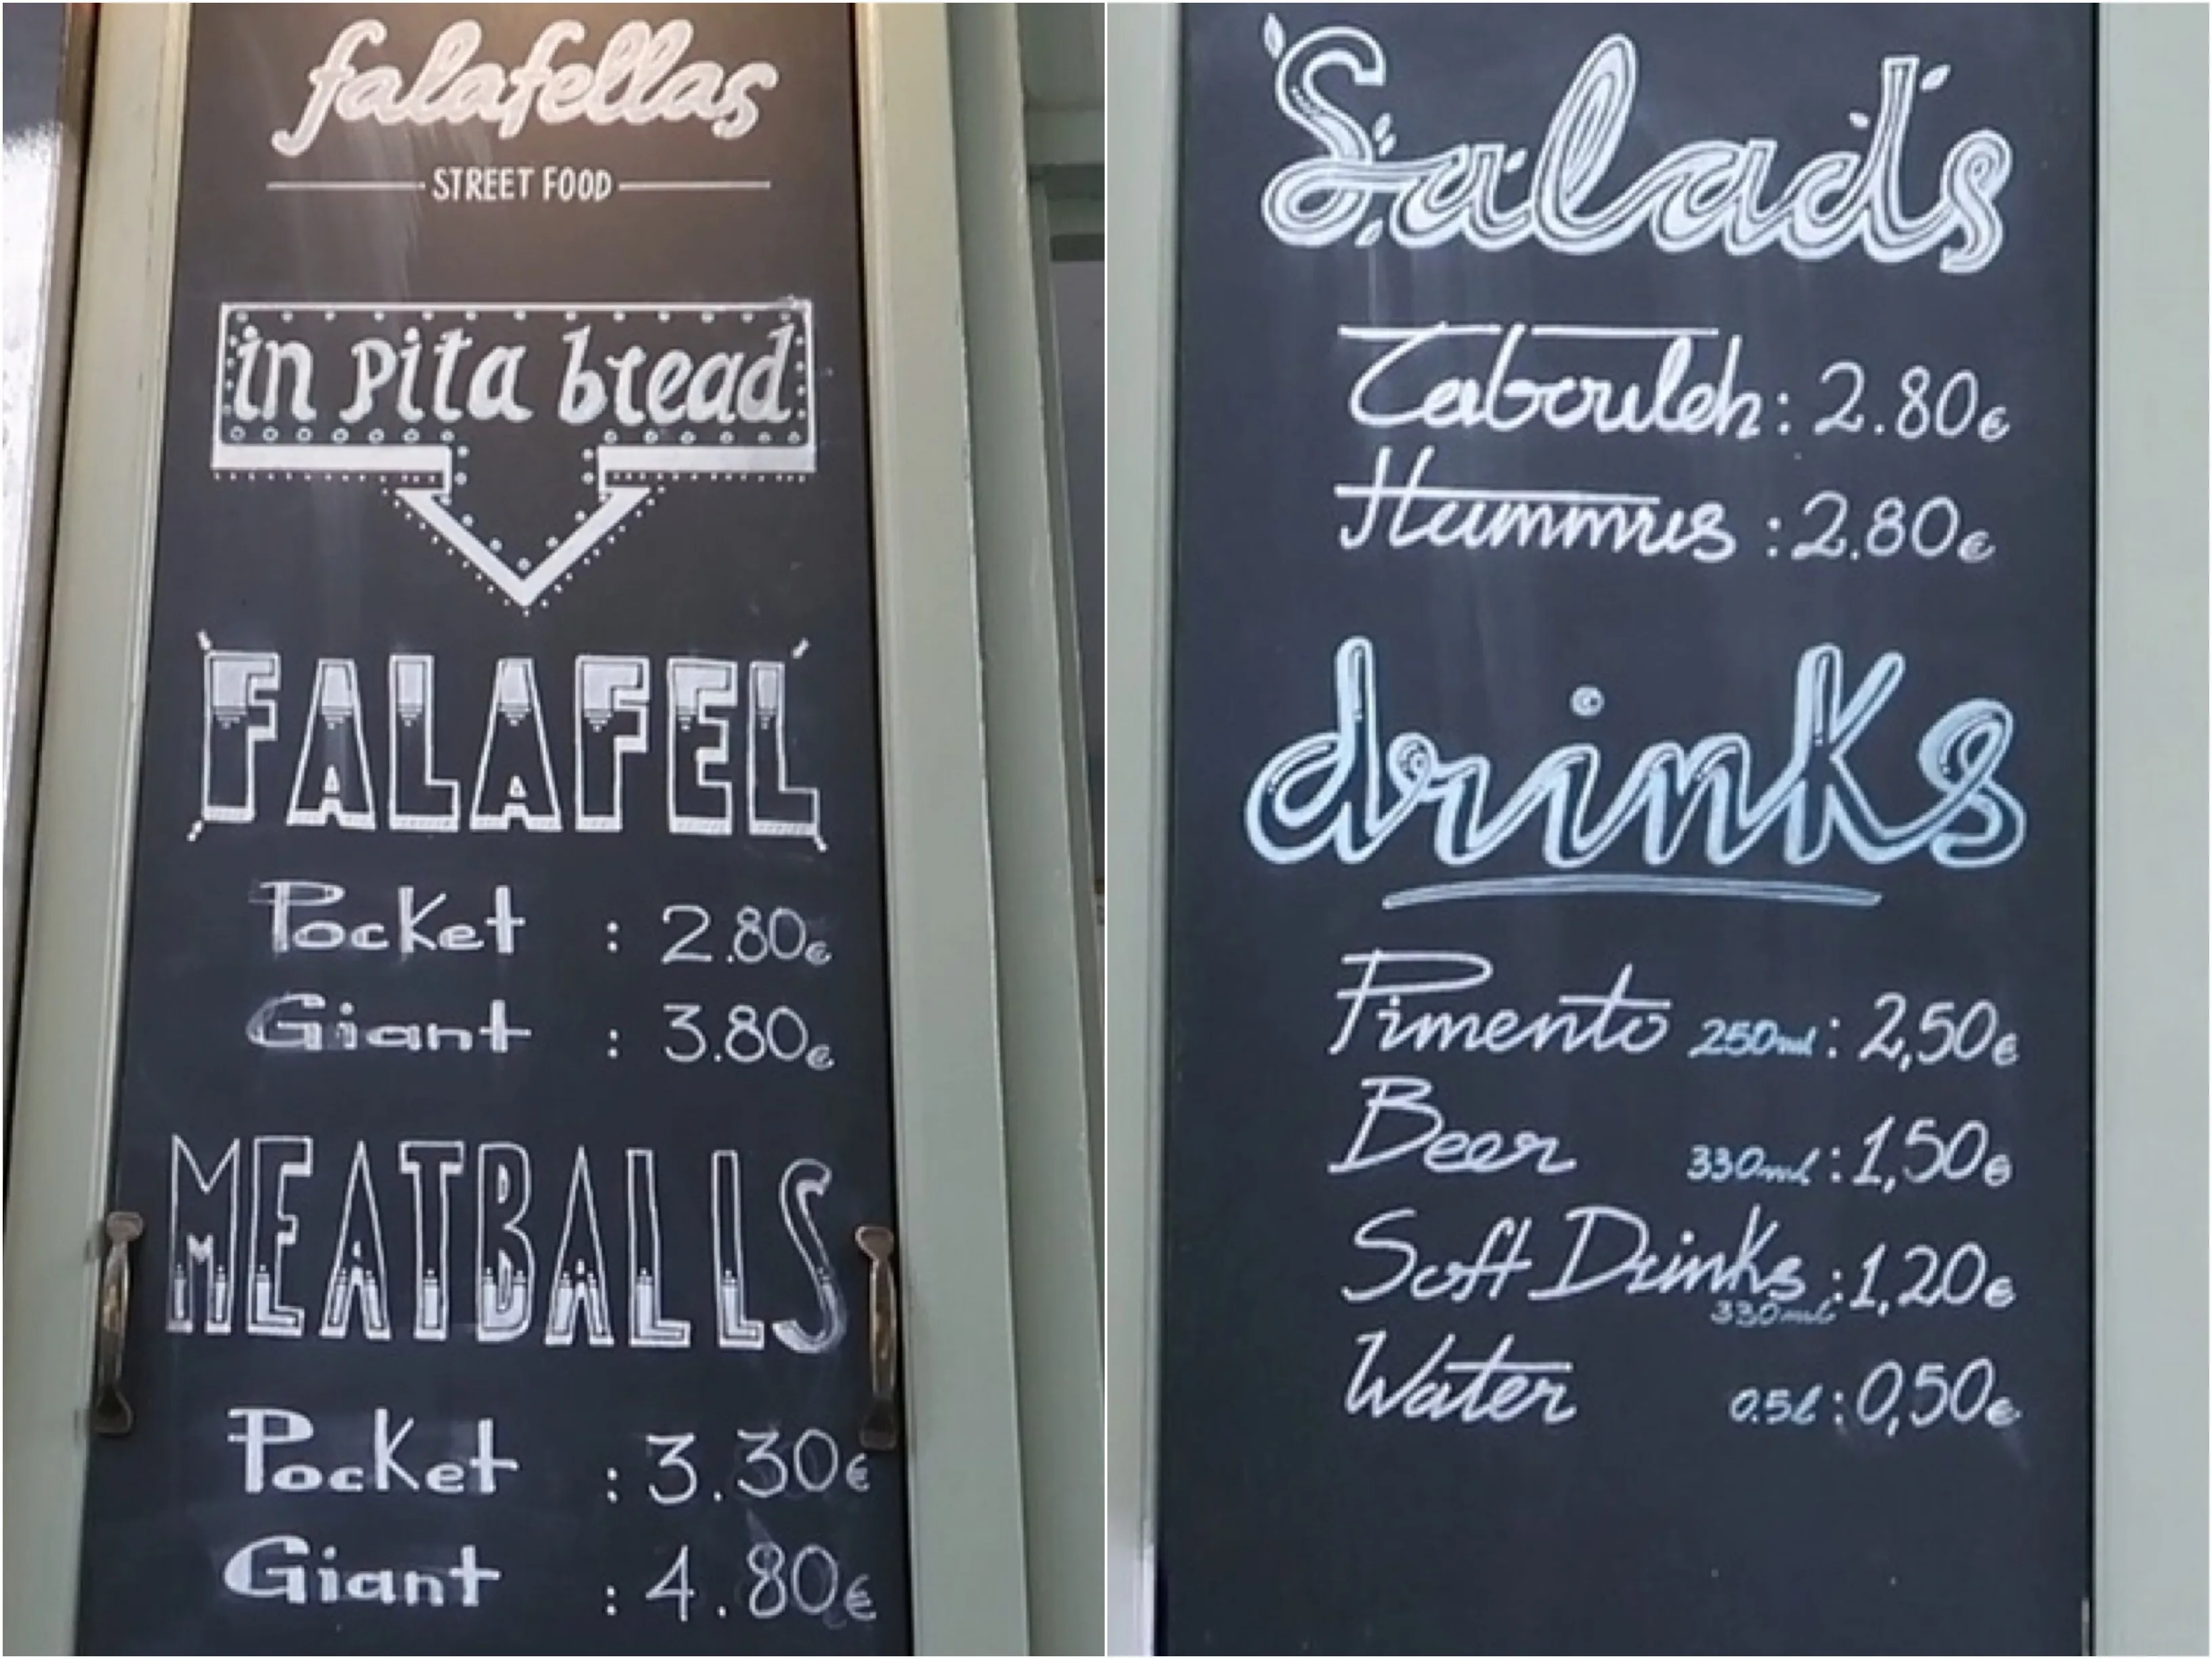 falafellas
STREET FOOD
in pita bread
FALAFEL
Pocket : 2.80€
Giant : 3.80€
MEATBALLS
Pocket : 3.30€
Giant : 4.80€
Salads
Tabouleh : 2.80€
Hummus : 2.80€
drinks
Pimento 250ml : 2,50€
Beer 330ml : 1,50€
Soft Drinks : 1,20€
330ml
Water 0.5l : 0,50€